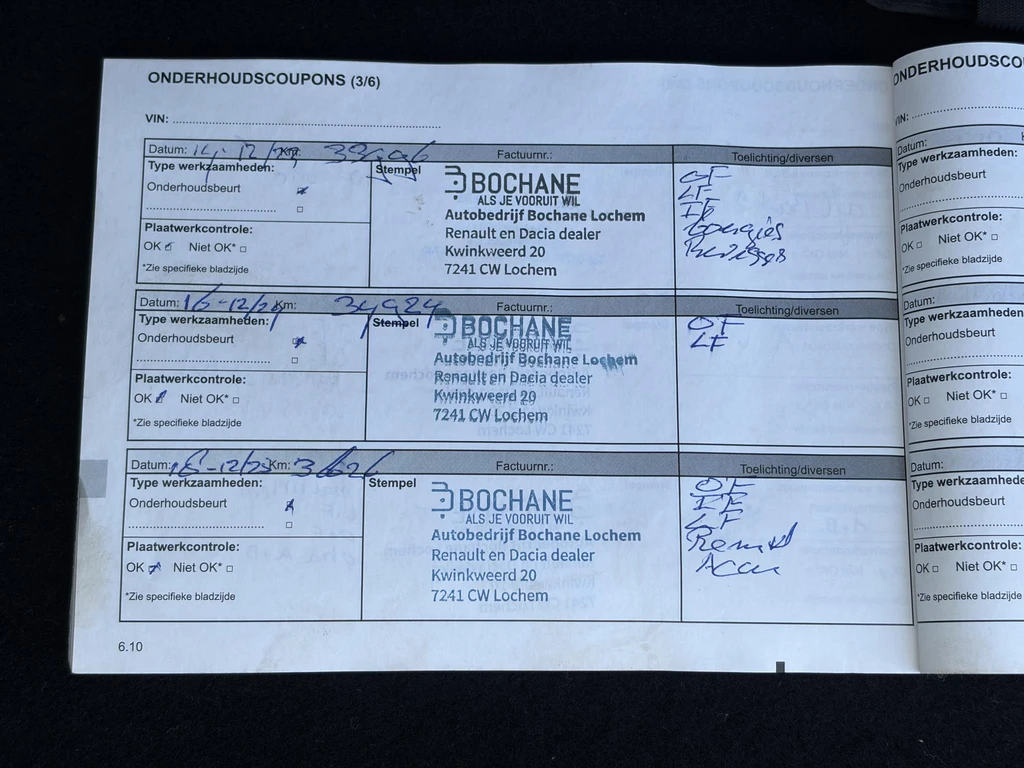 ONDERHOUDSCOUPONS (3/6)
VIN:
Datum: 14-12/23 Km: Factuurnr.: Toelichting/diversen
Type werkzaamheden: Stempel
Onderhoudsbeurt
Plaatwerkcontrole:
OK Niet OK*
*Zie specifieke bladzijde
BOCHANE
ALS JE VOORUIT WIL
Autobedrijf Bochane Lochem
Renault en Dacia dealer
Kwinkweerd 20
7241 CW Lochem
OF
LF
IF
Bougies
Datum: 16-12/24 Km: 34924 Factuurnr.: Toelichting/diversen
Type werkzaamheden: Stempel
Onderhoudsbeurt
Plaatwerkcontrole:
OK Niet OK*
*Zie specifieke bladzijde
BOCHANE
ALS JE VOORUIT WIL
Autobedrijf Bochane Lochem
Renault en Dacia dealer
Kwinkweerd 20
7241 CW Lochem
OF
LF
Datum: 16-12/25 Km: Factuurnr.: Toelichting/diversen
Type werkzaamheden: Stempel
Onderhoudsbeurt
Plaatwerkcontrole:
OK Niet OK*
*Zie specifieke bladzijde
BOCHANE
ALS JE VOORUIT WIL
Autobedrijf Bochane Lochem
Renault en Dacia dealer
Kwinkweerd 20
7241 CW Lochem
OF
IF
LF
Accu
6.10
ONDERHOUDSCO
VIN:
Datum:
Type werkzaamheden:
Onderhoudsbeurt
Plaatwerkcontrole:
OK Niet OK*
*Zie specifieke bladzijde
Datum:
Type werkzaamheden
Onderhoudsbeurt
Plaatwerkcontrole:
OK Niet OK*
*Zie specifieke bladzijde
Datum:
Type werkzaamhede
Onderhoudsbeurt
Plaatwerkcontrole:
OK Niet OK*
*Zie specifieke bladzijde